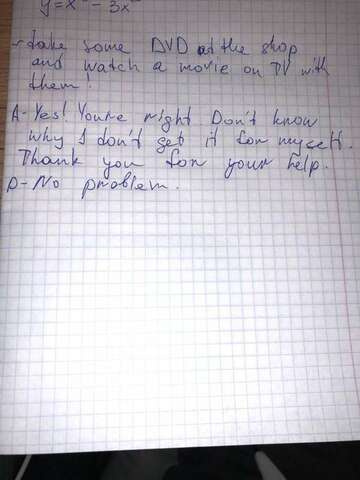 y = x - 3x
- Take some DVD at the shop
and watch a movie on TV with
them!
A - Yes! You're right Don't know
why I don't get it for myself.
Thank you for your help.
D - No problem.